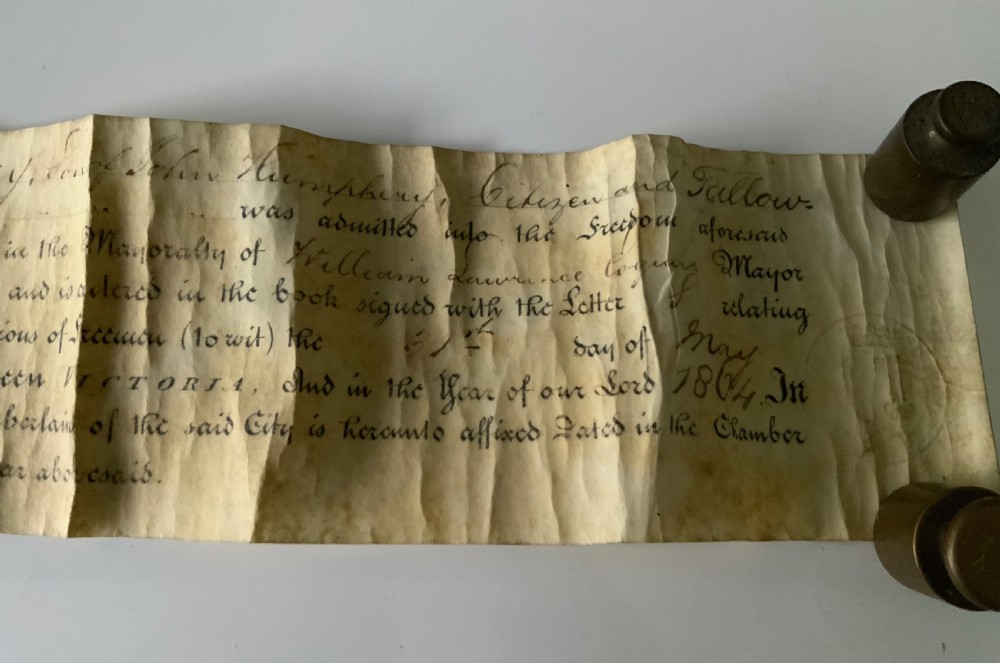 y, Son of John Humphery, Citizen and Tallow=
was admitted into the Freedom aforesaid
in the Mayoralty of William Lawrence Mayor
and is entered in the book signed with the Letter relating
ions of Freemen (to wit) the 31st day of May
een VICTORIA, And in the Year of our Lord 1864. In
berlain of the said City is hereunto affixed Dated in the Chamber
ar abovesaid.